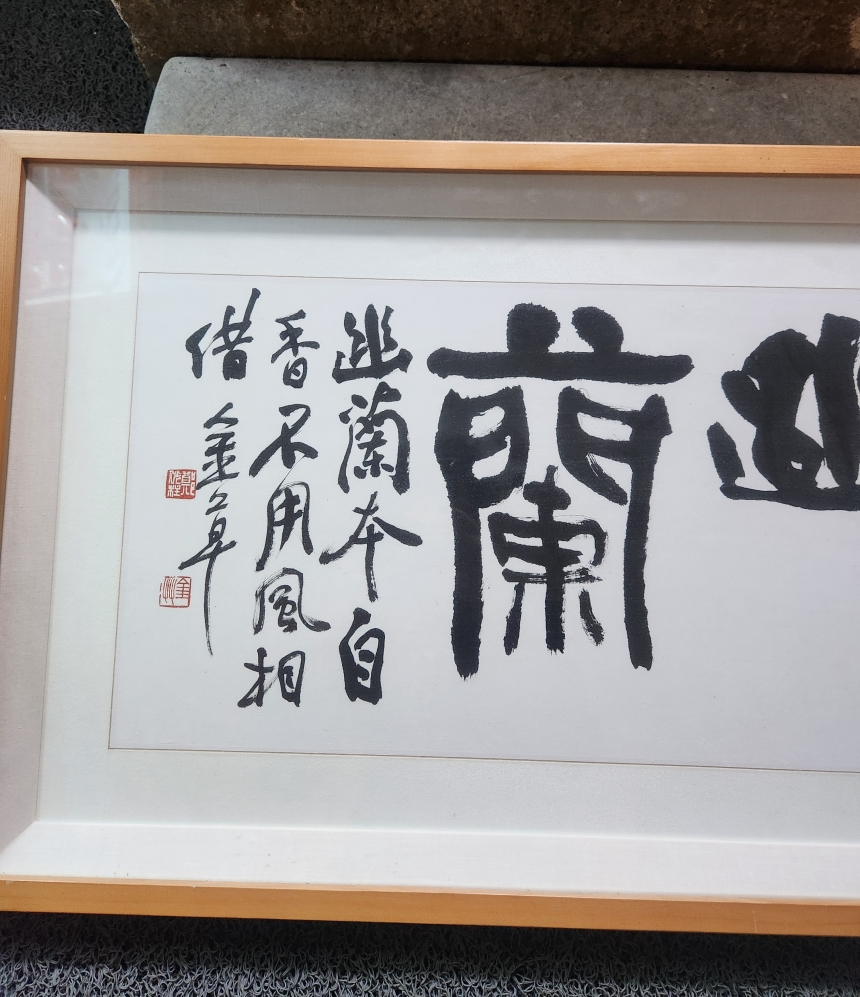 幽蘭
幽蘭本自
香不用風相
借 金草